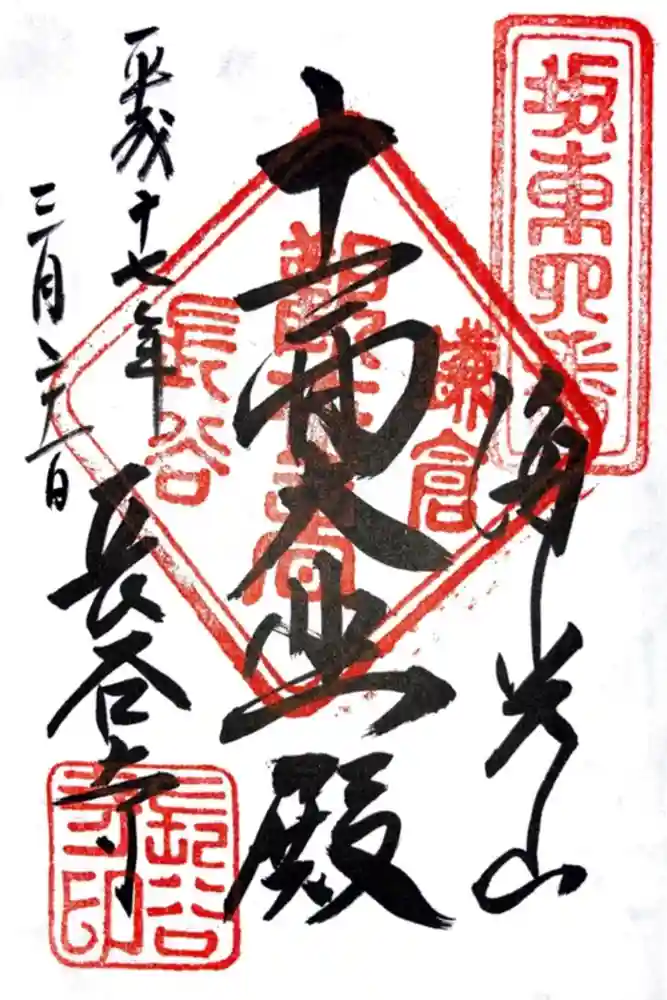 坂東四番
海光山
十一面大悲殿
鎌倉
長谷
平成十七年
三月二十一日
長谷寺
長谷
寺印